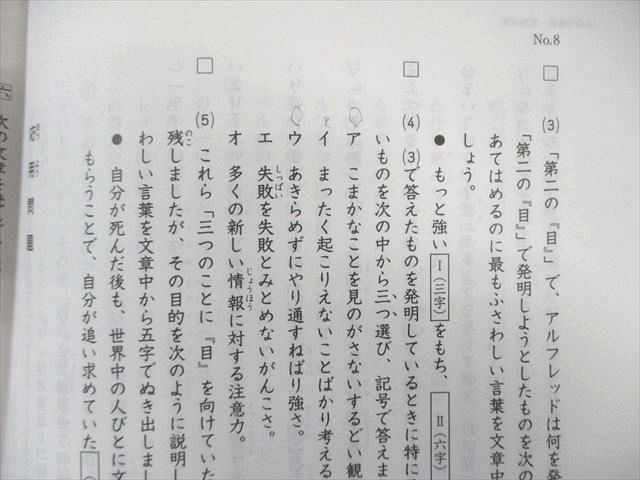 No.8
□ (3) 「第二の『目』で、アルフレッドは何を発
「第二の『目』」で発明しようとしたものを次の
あてはめるのに最もふさわしい言葉を文章中
しょう。
● もっと強い Ⅰ(三字) をもち、 Ⅱ(六字)
□ (4) (3)で答えたものを発明しているときに特に
いものを次の中から三つ選び、記号で答えま
ア こまかなことを見のがさないするどい観
イ まったく起こりえないことばかり考える
ウ あきらめずにやり通すねばり強さ。
エ 失敗を失敗とみとめないがんこさ。
しっぱい
オ 多くの新しい情報に対する注意力。
じょうほう
□ (5) これら「三つのことに『目』を向けていた
残しましたが、その目的を次のように説明し
のこ
わしい言葉を文章中から五字でぬき出しまし
● 自分が死んだ後も、世界中の人びとに文
もらうことで、自分が追い求めていた
六 次の文章を